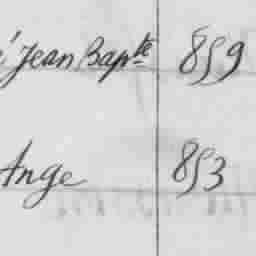 Jean Bapte 859
Ange 853